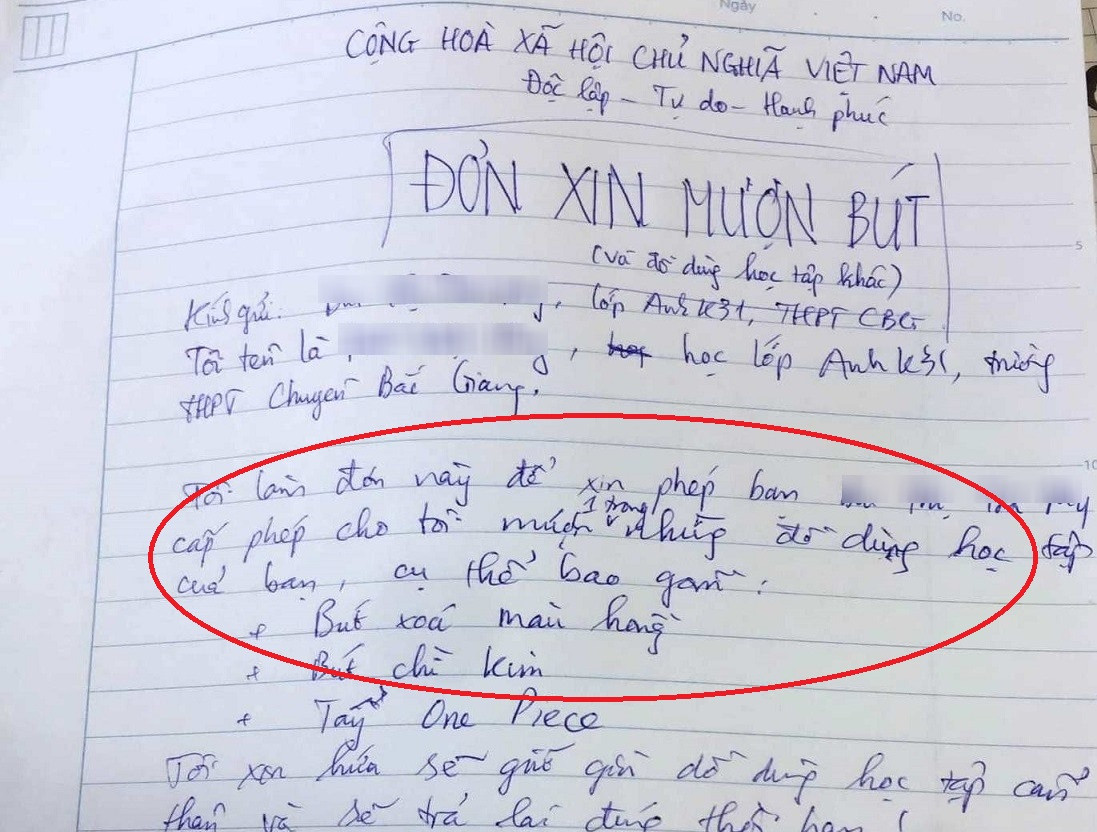 Ngày No.
CỘNG HOÀ XÃ HỘI CHỦ NGHĨA VIỆT NAM
Độc lập - Tự do - Hạnh phúc
ĐƠN XIN MƯỢN BÚT
(và đồ dùng học tập khác)
5
Kính gửi: , lớp Anh K31, THPT CBG
Tôi tên là , học lớp Anh K31, trường
THPT Chuyên Bắc Giang.
10
Tôi làm đơn này để xin phép bạn
cấp phép cho tôi mượn 1 trong những đồ dùng học tập
của bạn, cụ thể bao gồm:
+ Bút xoá màu hồng
+ Bút chì kim
+ Tẩy One Piece
Tôi xin hứa sẽ giữ gìn đồ dùng học tập cẩn
thận và sẽ trả lại đúng thời hạn (